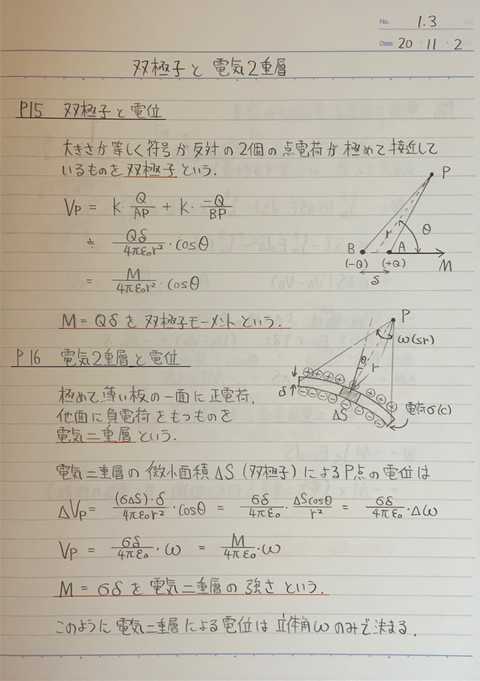 No. 1.3
Date 20・11・2
双極子と電気2重層
P15 双極子と電位
大きさが等しく符号が反対の2個の点電荷が極めて接近して
いるものを双極子という.
P
Vp = k・Q/AP + k・-Q/BP
r θ
≒ Qδ/4πε₀r²・cosθ
B A
(-Q) (+Q) M
= M/4πε₀r²・cosθ
δ
M = Qδ を双極子モーメントという.
P
P16 電気2重層と電位
ω(sr)
θ r
極めて薄い板の一面に正電荷,
δ
他面に負電荷をもつものを
ΔS 電荷σ(c)
電気二重層という.
電気二重層の微小面積ΔS(双極子)によるP点の電位は
ΔVp = (σΔS)・δ/4πε₀r²・cosθ = σδ/4πε₀・ΔScosθ/r² = σδ/4πε₀・Δω
Vp = σδ/4πε₀・ω = M/4πε₀・ω
M = σδ を電気二重層の強さという.
このように電気二重層による電位は立体角ωのみで決まる.